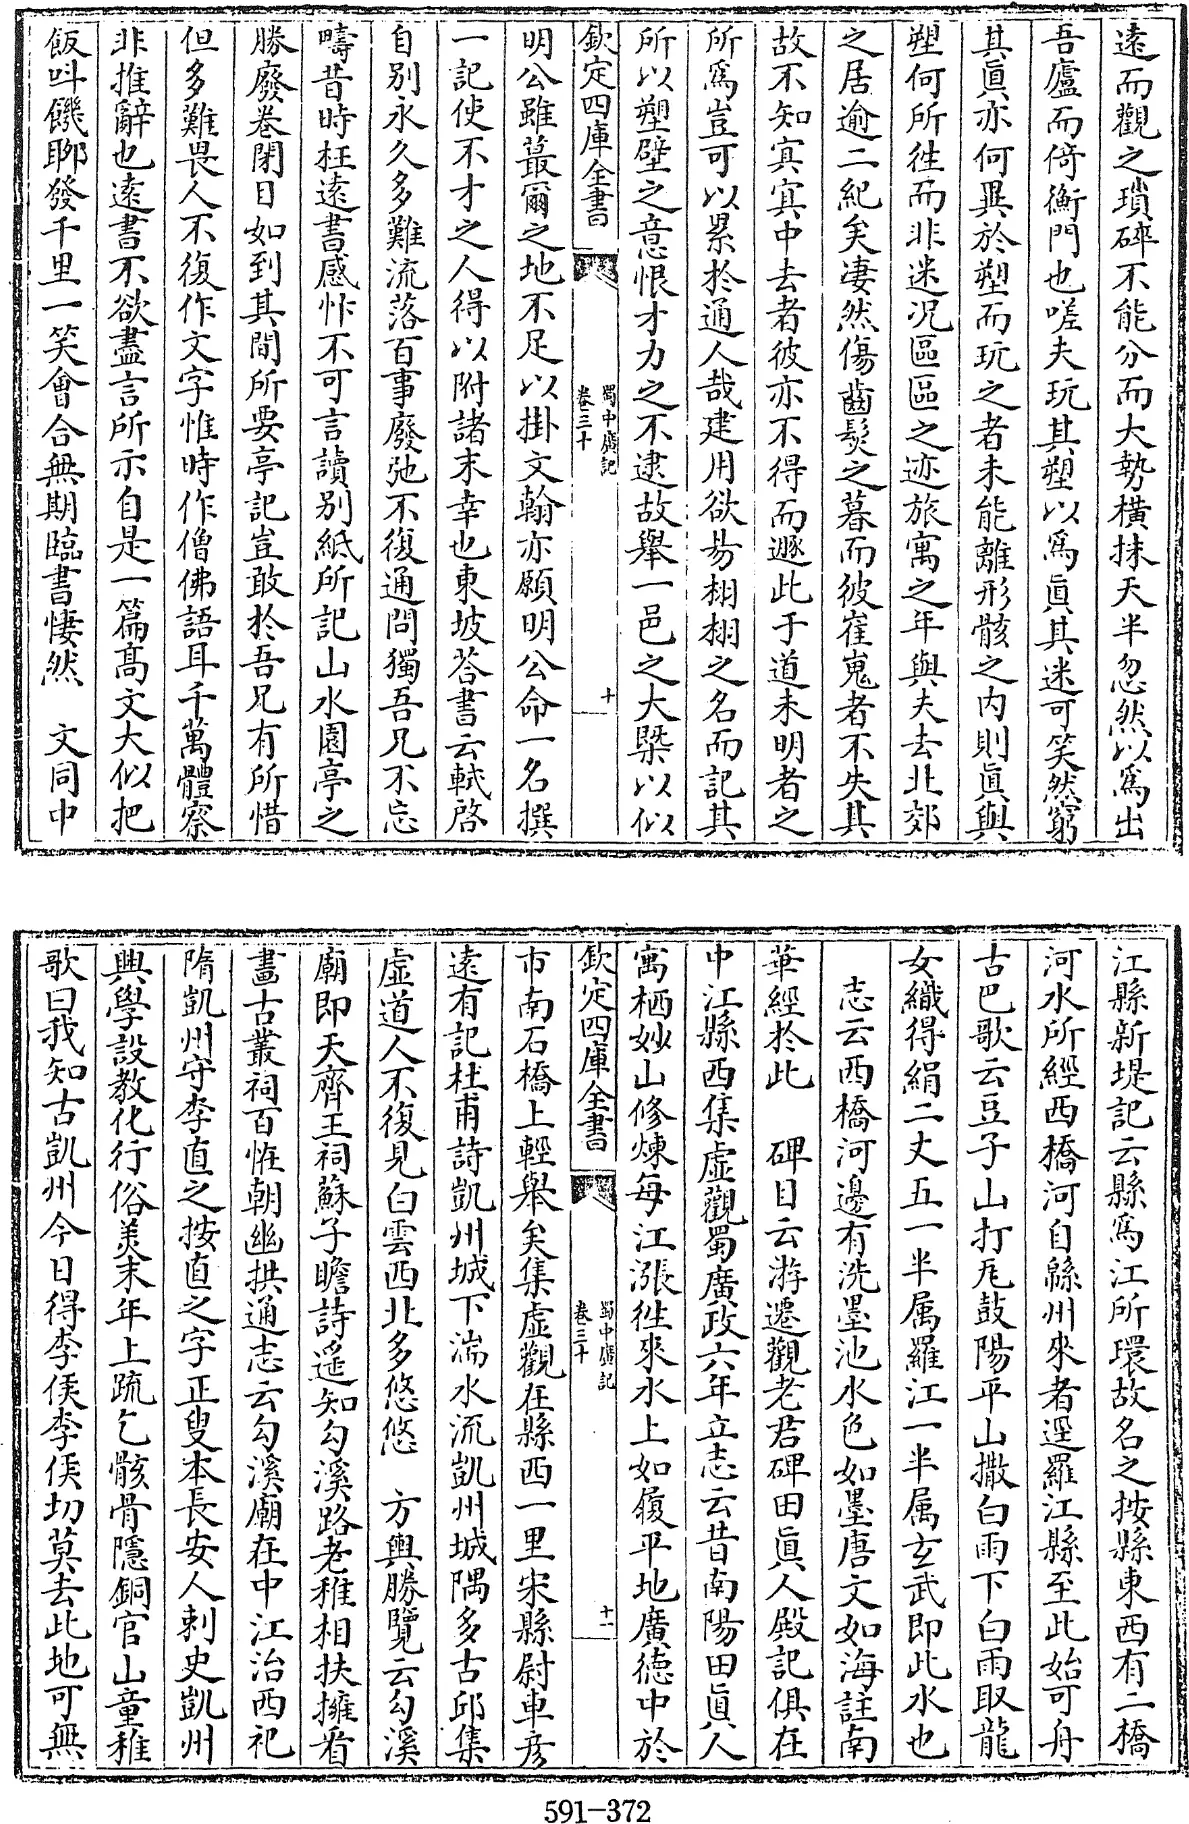 遠而觀之瑣碎不能分而大勢橫抹天半忽然以爲出
吾廬而倚衡門也嗟夫玩其塑以爲眞其迷可笑然窮
其眞亦何異於塑而玩之者未能離形骸之内則眞與
塑何所徃而非迷况區區之迹旅寓之年與夫去北郊
之居逾二紀矣凄然傷齒髪之暮而彼崔嵬者不失其
故不知寘寘中去者彼亦不得而遯此于道未明者之
所爲豈可以累於通人哉建用欲易栩栩之名而記其
所以塑壁之意恨才力之不逮故舉一邑之大槩以似
欽定四庫全書
蜀中廣記
卷三十
十
明公雖蕞爾之地不足以掛文翰亦願明公命一名撰
一記使不才之人得以附諸末幸也東坡荅書云軾啓
自别永久多難流落百事廢弛不復通問獨吾兄不忘
疇昔時枉遠書感怍不可言讀别紙所記山水園亭之
勝廢卷閉目如到其間所要亭記豈敢於吾兄有所惜
但多難畏人不復作文字惟時作僧佛語耳千萬體察
非推辭也遠書不欲盡言所示自是一篇髙文大似把
飯呌饑聊發千里一笑會合無期臨書悽然　文同中
江縣新堤記云縣爲江所環故名之按縣東西有二橋
河水所經西橋河自緜州來者逕羅江縣至此始可舟
古巴歌云豆子山打瓦鼓陽平山撒白雨下白雨取龍
女織得絹二丈五一半属羅江一半属玄武即此水也
志云西橋河邊有洗墨池水色如墨唐文如海註南
華經於此　碑目云游遷觀老君碑田眞人殿記俱在
中江縣西集虛觀蜀廣政六年立志云昔南陽田眞人
寓栖妙山修煉每江漲徃來水上如履平地廣徳中於
欽定四庫全書
蜀中廣記
卷三十
十一
市南石橋上輕舉矣集虛觀在縣西一里宋縣尉車彦
遠有記杜甫詩凱州城下湍水流凱州城隅多古邱集
虛道人不復見白雲西北多悠悠　方輿勝覽云勾溪
廟即天齊王祠蘇子瞻詩遥知勾溪路老稚相扶擁看
畫古叢祠百怪朝幽拱通志云勾溪廟在中江治西祀
隋凱州守李直之按直之字正叟本長安人刺史凱州
興學設教化行俗美末年上疏乞骸骨隱銅官山童稚
歌曰我知古凱州今日得李侯李侯切莫去此地可無
591-372